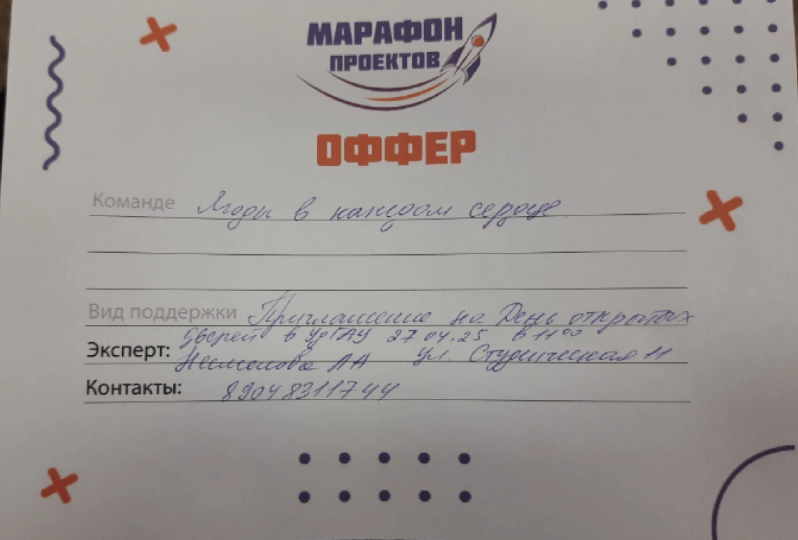 МАРАФОН
ПРОЕКТОВ
ОФФЕР
Команде Ягоды в каждом сердце
Вид поддержки Приглашение на День открытых
дверей в УрГАУ 27.04.25 в 11 00
Эксперт: Неможова АА ул. Студенческая 11
Контакты: 89048311744